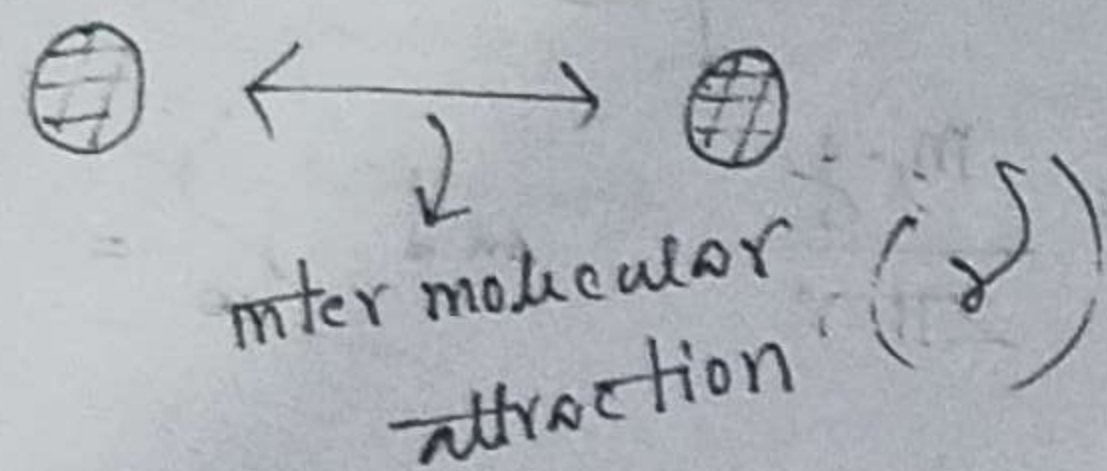 inter molecular
attraction